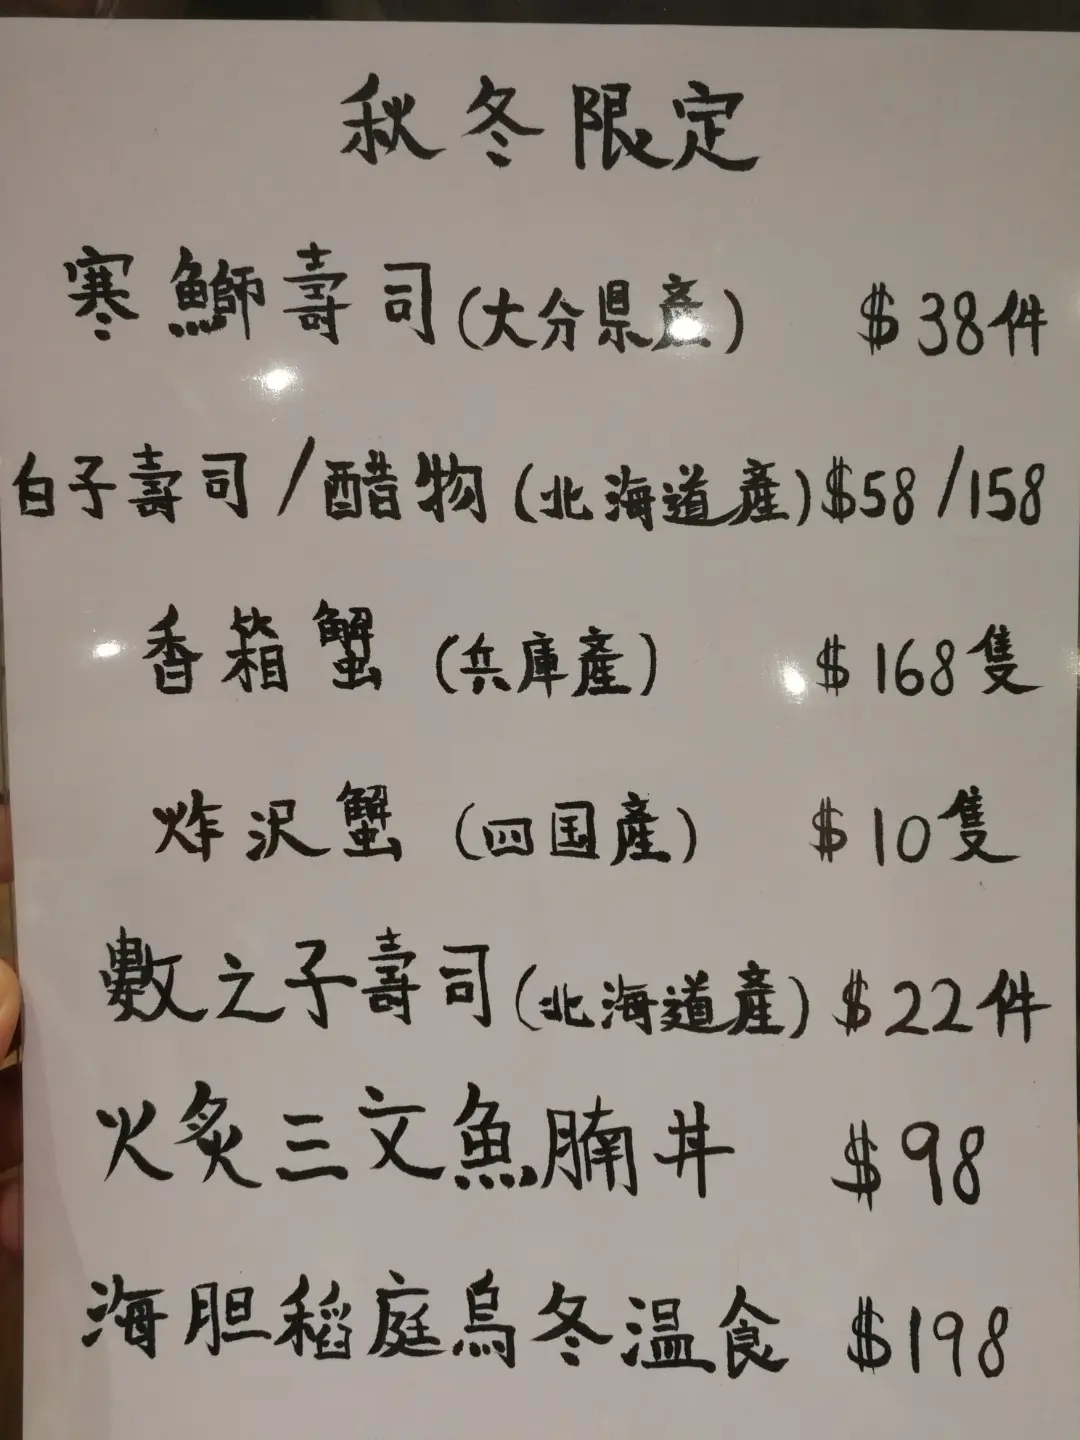 秋冬限定
寒鰤壽司(大分県產) $38件
白子壽司/醋物(北海道產)$58/158
香箱蟹(兵庫產) $168隻
炸沢蟹(四国產) $10隻
數之子壽司(北海道產) $22件
火炙三文魚腩丼 $98
海胆稻庭烏冬温食 $198